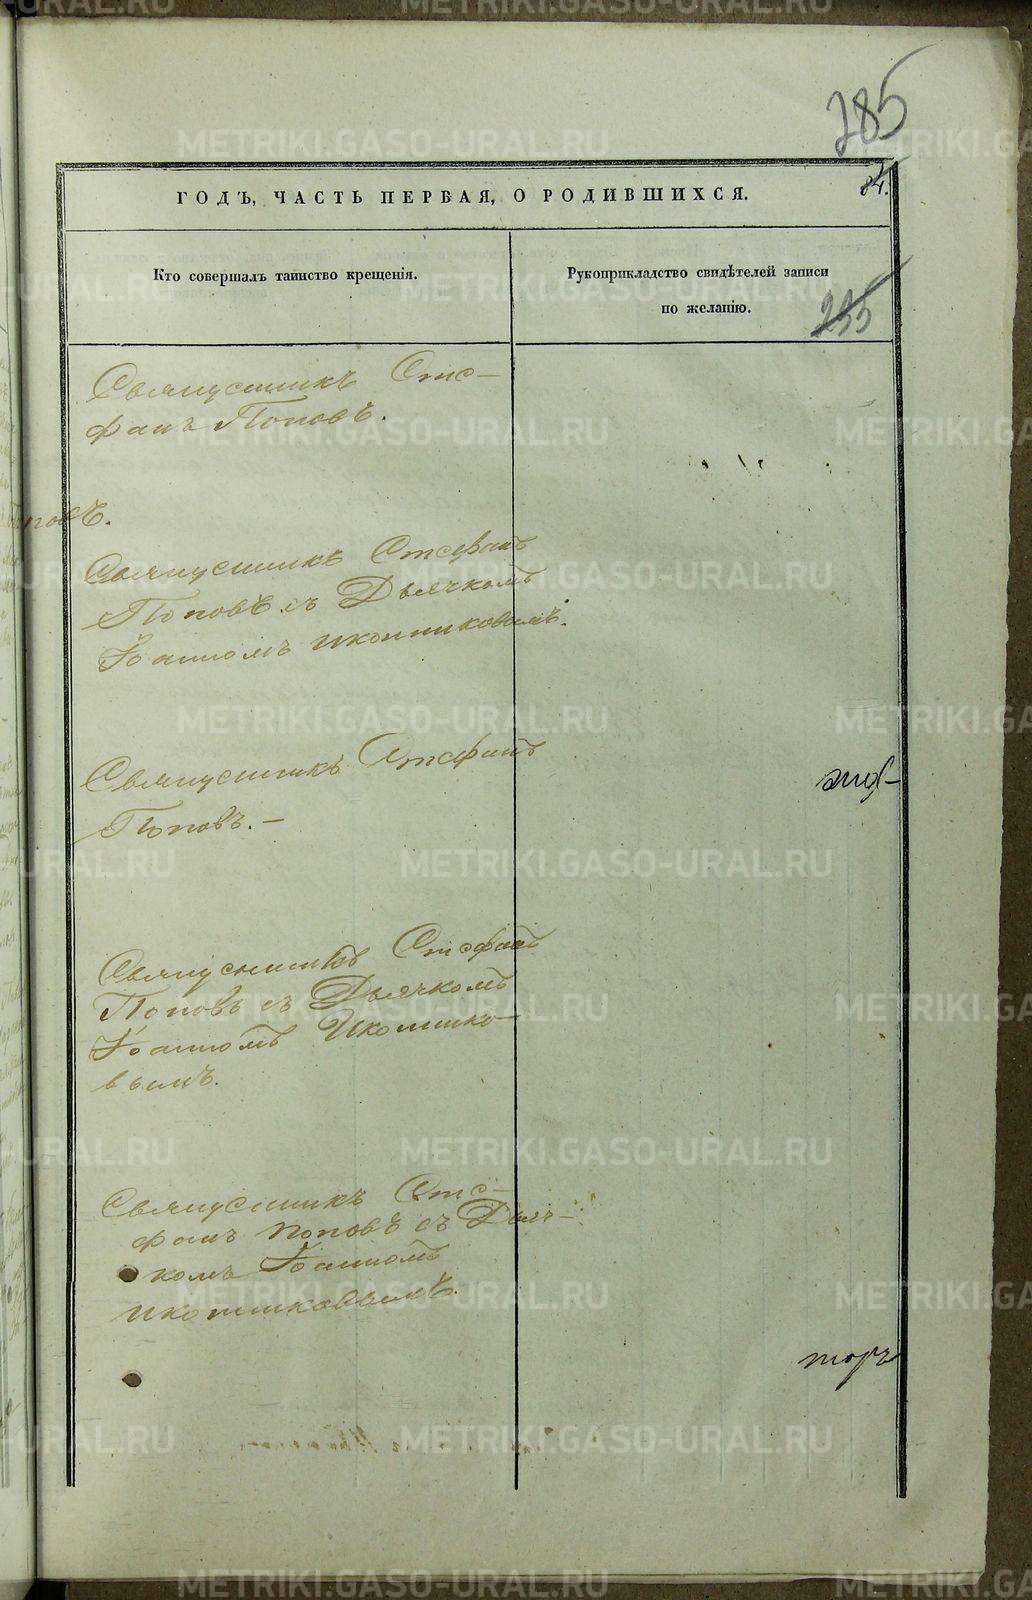 285
ГОДЪ, ЧАСТЬ ПЕРВАЯ, О РОДИВШИХСЯ.
84.
Кто совершалъ таинство крещенія.
Рукоприкладство свидѣтелей записи
по желанію.
235
Священникъ Сте-
фанъ Поповъ.
Священникъ Стефанъ
Поповъ съ Дьячкомъ
Іоанномъ Иконниковымъ.
Священникъ Стефанъ
Поповъ. —
Священникъ Стефанъ
Поповъ съ Дьячкомъ
Іоанномъ Иконнико-
вымъ.
Священникъ Сте-
фанъ Поповъ съ Дьяч-
комъ Іоанномъ
Иконниковымъ.
METRIKI.GASO-URAL.RU